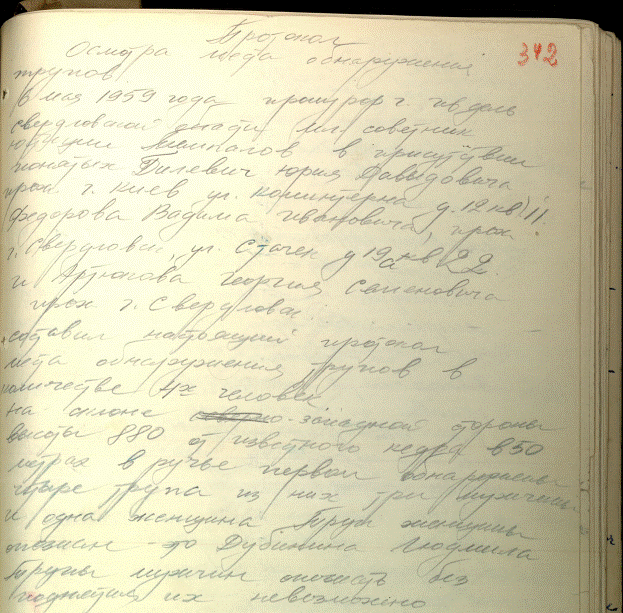 342
Протокол
Осмотра места обнаружения
трупов
6 мая 1959 года прокурор г. Ивдель
свердловской области мл советник
юстиции Темпалов в присутствии
понятых Дилевич Юрия Давыдовича
прож. г. Киев ул. коминтерна д. 12 кв 11
Федорова Вадима Ивановича, прож.
г. Свердловск, ул. Стачек д 19а кв 22.
и Артюкова Георгия Семеновича
прож г. Свердловск
составил настоящий протокол
места обнаружения трупов в
количестве 4х человек
На склоне западной стороны
высоты 880 от известного кедра в 50
метрах в ручье первом обнаружены
четыре трупа из них три мужчины
и одна женщина. Труп женщины
опознан - это Дубинина Людмила
Трупы мужчин опознать без
поднятия их невозможно